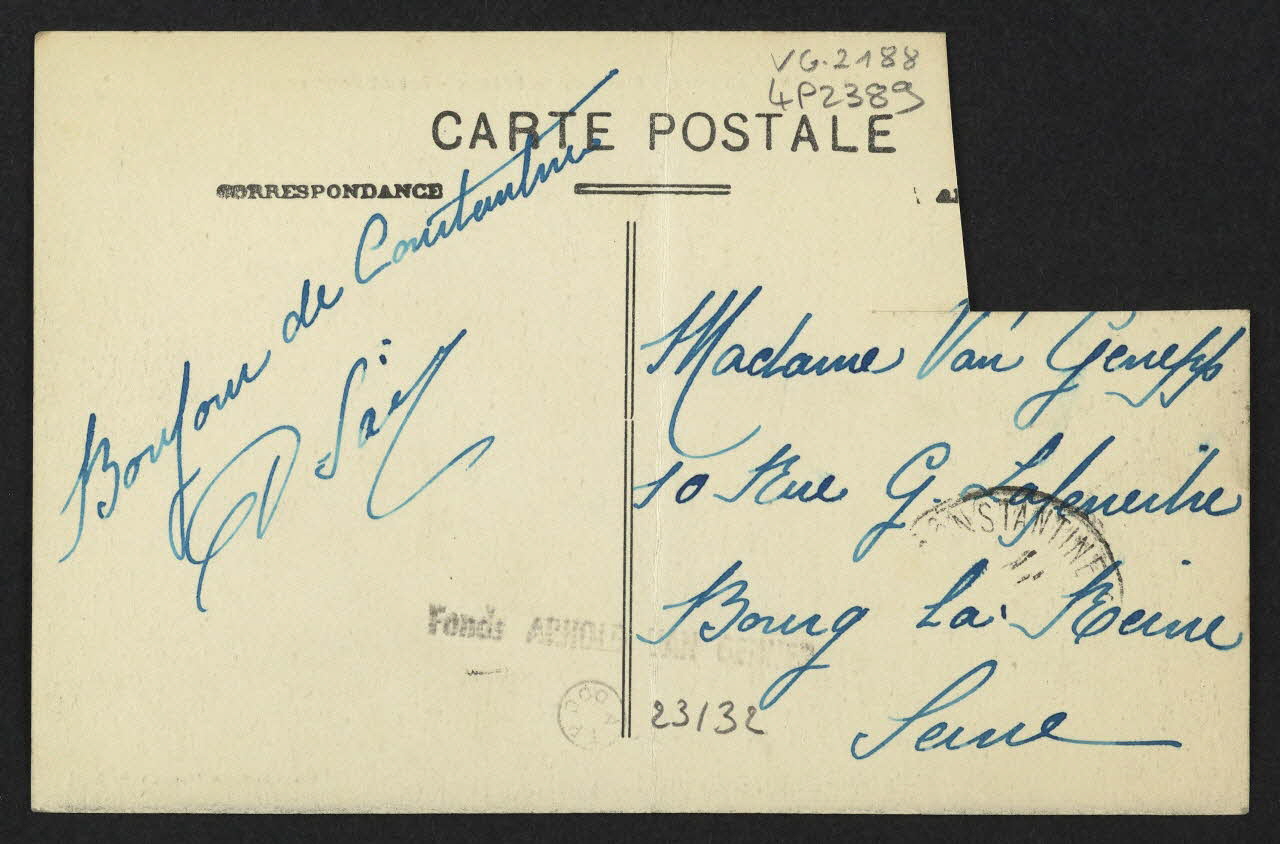 VG.2188
4P2389
CARTE POSTALE
CORRESPONDANCE
Bonjour de Constantine
Madame Van Genepp
10 Rue G. Lafenestre
Bourg la Reine
Seine
CONSTANTINE
Fonds ARNOLD VAN GENNEP
23132